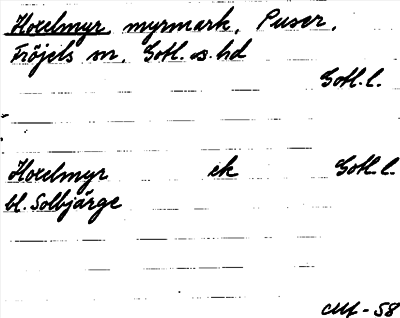 Hoxelmyr, myrmark, Puser,
Fröjels sn, Gotl. s. hd
Gotl. l.
Hoxelmyr ek Gotl. l.
bl. Solbjärge
-58